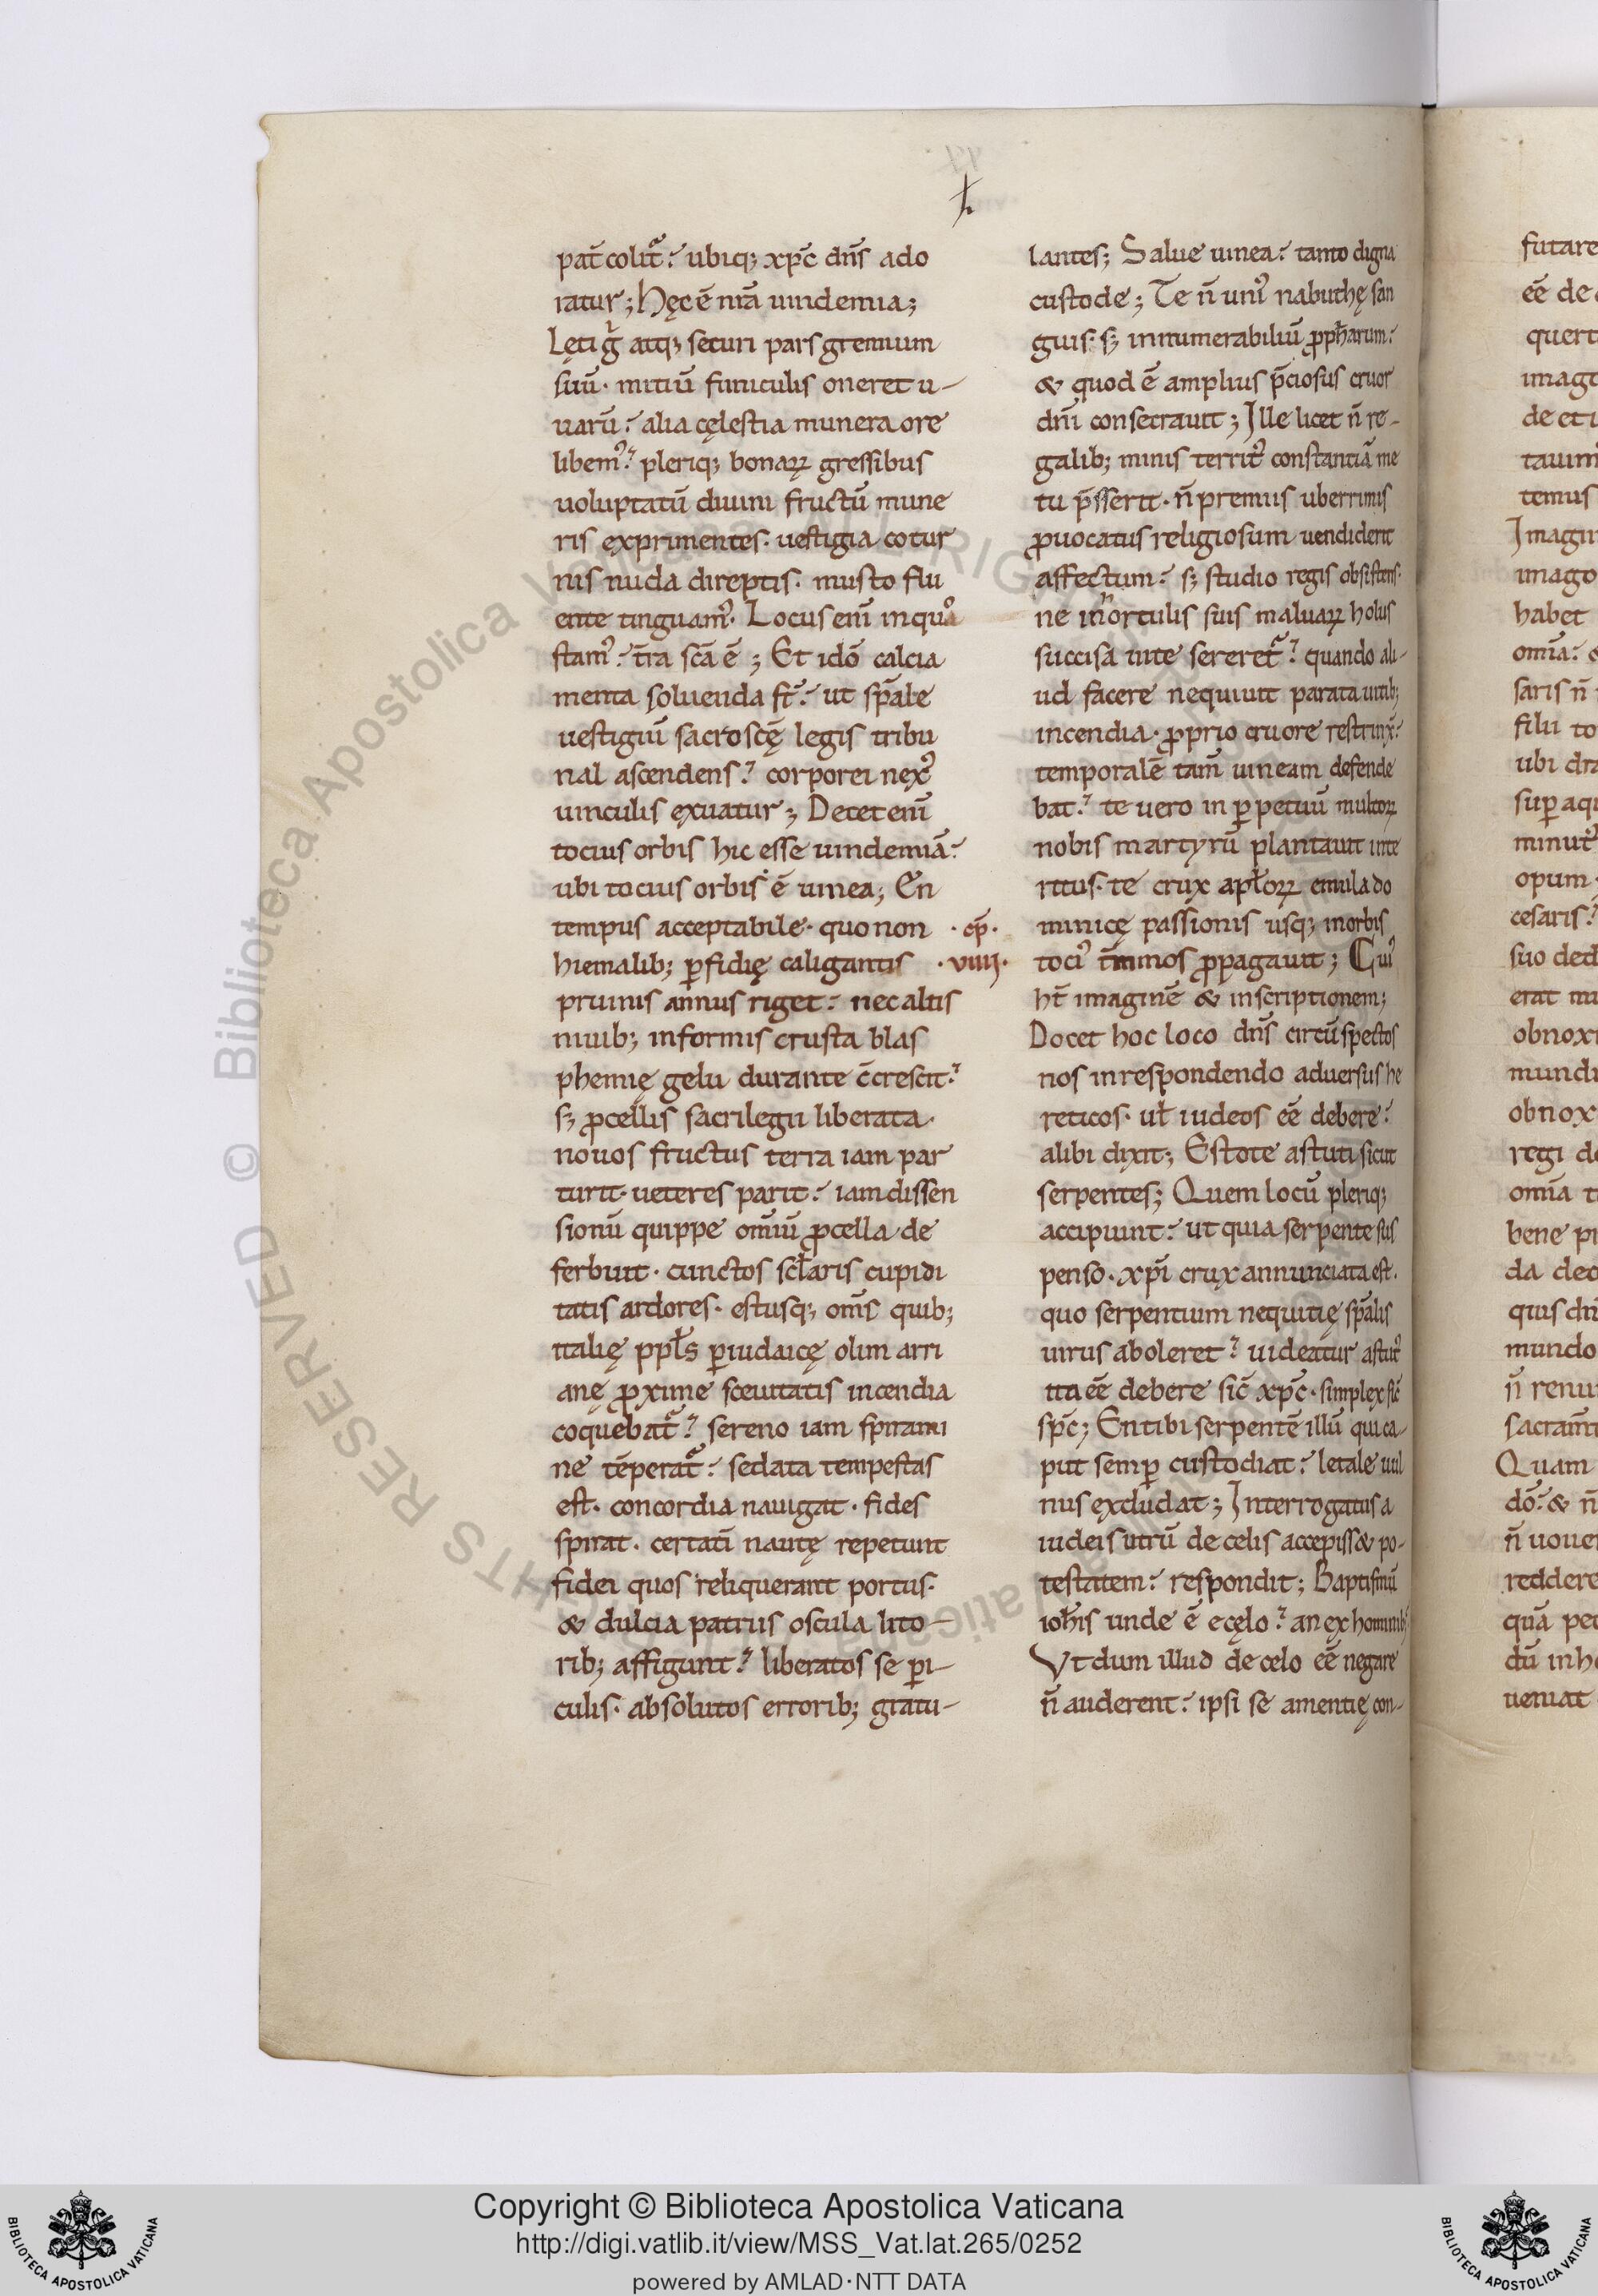 pat̄ colit᷑? ubiq; xp̄c dn̄s ado
ratur; hęc ē nr̄a uindemia;
Lęti g̊ atq; securi pars gremium
suū· mitiū funiculis oneret u-
uarū? alia cęlestia munera ore
libem᷒? pleriq; bonaꝝ gressibus
uoluptatū diuini fructū mune
ris exprimentes· uestigia cotur
nis nuda direptis· musto flu
ente tinguam᷒· Locus enī in quo
stam᷒? t̄ra sc̄a ē; Et idō calcia
menta soluenda st᷑? ut sp̄ale
uestigiū sacroscę̄ legis tribu
nal ascendens? corporei nex᷒
uinculis exuatur; Decet enī
tocius orbis hic esse uindemiā?
ubi tocius orbis ē uinea; En
tempus acceptabile· quo non
hiemalib; ꝑfidię caligantis
pruinis annus riget? nec altis
niuib; informis crusta blas
phemię gelu durante c̄crescit?
s; ꝓcellis sacrilegii liberata·
nouos fructus terra iam par
turit· ueteres parit? iam dissen
sionū quippe om̄iū ꝓcella de
ferbuit· cunctos scl̄aris cupidi
tatis ardores· estusq; om̄s quib;
italię ppl̄s ꝑ iudaicę olim arri
anę ꝓxime sceuitatis incendia
coquebat᷑? sereno iam spirami
ne tēperat᷑? sedata tempestas
est· concordia nauigat· fides
spirat· certatī nautę repetunt
fidei quos reliquerant portus·
& dulcia patriis oscula lito-
rib; affigunt? liberatos se ꝑi-
culis· absolutos errorib; gratu-
·cp̄·
·viiij·
lantes; Salue uinea? tanto digna
custode; Te n̄ uni᷒ nabuthę san
guis· s; innumerabiliū ꝓph̄arum?
& quod ē amplius p̄ciosus cruor
dn̄i consecrauit; Ille licet n̄ re-
galib; minis territ᷒ constantiā me
tu p̄sserit· n̄ premiis uberrimis
ꝓuocatus religiosum uendiderit
affectum? s; studio regis obsistens·
ne in hortulis suis maluaꝝ holus
succisa uite sereret᷑? quando ali-
ud facere nequiuit parata uitib;
incendia· ꝓprio cruore restrinx̄?
temporalē tam̄ uineam defende
bat? te uero in ꝑpetuū multoꝝ
nobis martyrū plantauit inte
ritus· te crux apl̄oꝝ emula do
minicę passionis usq; in orbis
toci᷒ t̄minos ꝓpagauit; Cui᷒
ht̄ imaginē & inscriptionem;
Docet hoc loco dn̄s circūspectos
nos in respondendo aduersus he
reticos· ul̄ iudeos eē debere?
alibi dixit; Estote astuti sicut
serpentes; Quem locū pleriq;
accipiunt? ut quia serpente sus
penso· xp̄i crux annunciata est·
quo serpentium nequitię sp̄alis
uirus aboleret? uideatur astut᷒
ita eē debere sic̄ xp̄c· simplex sic̄
sp̄c; En tibi serpentē illū qui ca-
put semꝑ custodiat? letale uul
nus excludat; Interrogatus a
iudeis utrū de celis accepiss& po-
testatem? respondit; Baptismū
ioh̄is unde ē e cęlo? an ex hominib;
Vt dum illud de celo eē negare
n̄ auderent? ipsi se amentię con-
futare
eē de
quert
imag
de et i
tauim
temus
Imagin
imago
habet
om̄ia?
saris n̄
filii to
ubi dra
suꝑ aqu
minut᷒
opum·
cesaris?
suo ded
erat
obnoxi
mundi
obnox
regi de
om̄ia t
bene pr
da deo
quis dn̄
mundo
n̄ renu
sacram̄
Quam
dō? & n̄
n̄ uoue
reddere
quā pec
dū in ho
ueniat
© Biblioteca Apostolica Vaticana ALL RIGHTS RESERVED
Copyright © Biblioteca Apostolica Vaticana
http://digi.vatlib.it/view/MSS_Vat.lat.265/0252
powered by AMLAD·NTT DATA
BIBLIOTECA APOSTOLICA VATICANA
BIBLIOTECA APOSTOLICA VATICANA